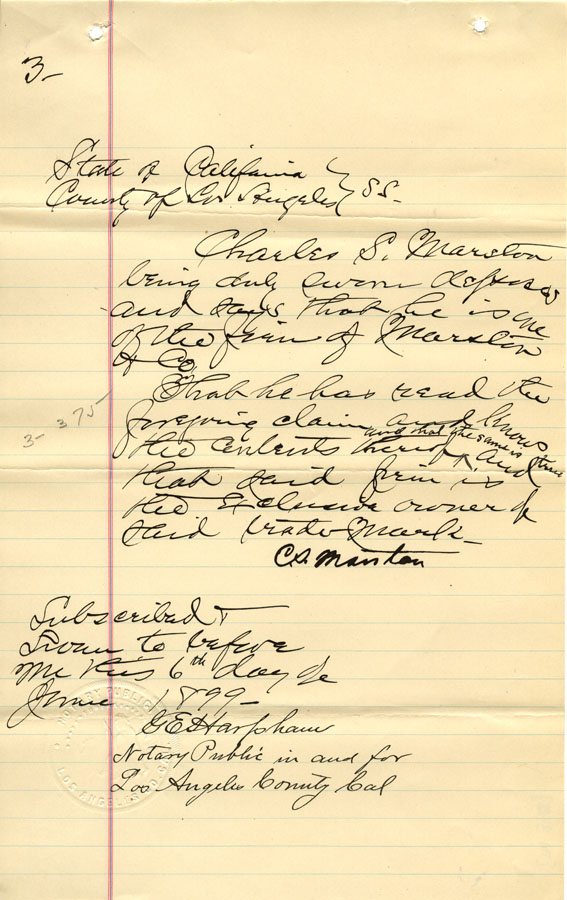 3-
State of California } SS-
County of Los Angeles
Charles S. Marston
being duly sworn deposes
and says that he is one
of the firm of Marston
& Co.
That he has read the
foregoing claim and knows
the contents thereof and that the same is true
and
that said firm is
the exclusive owner of
said trade mark-
3- 3 75
C S. Marston
Subscribed &
Sworn to before
me this 6th day of
June 1899-
G E Harpham
Notary Public in and for
Los Angeles County Cal
NOTARY PUBLIC
LOS ANGELES CO